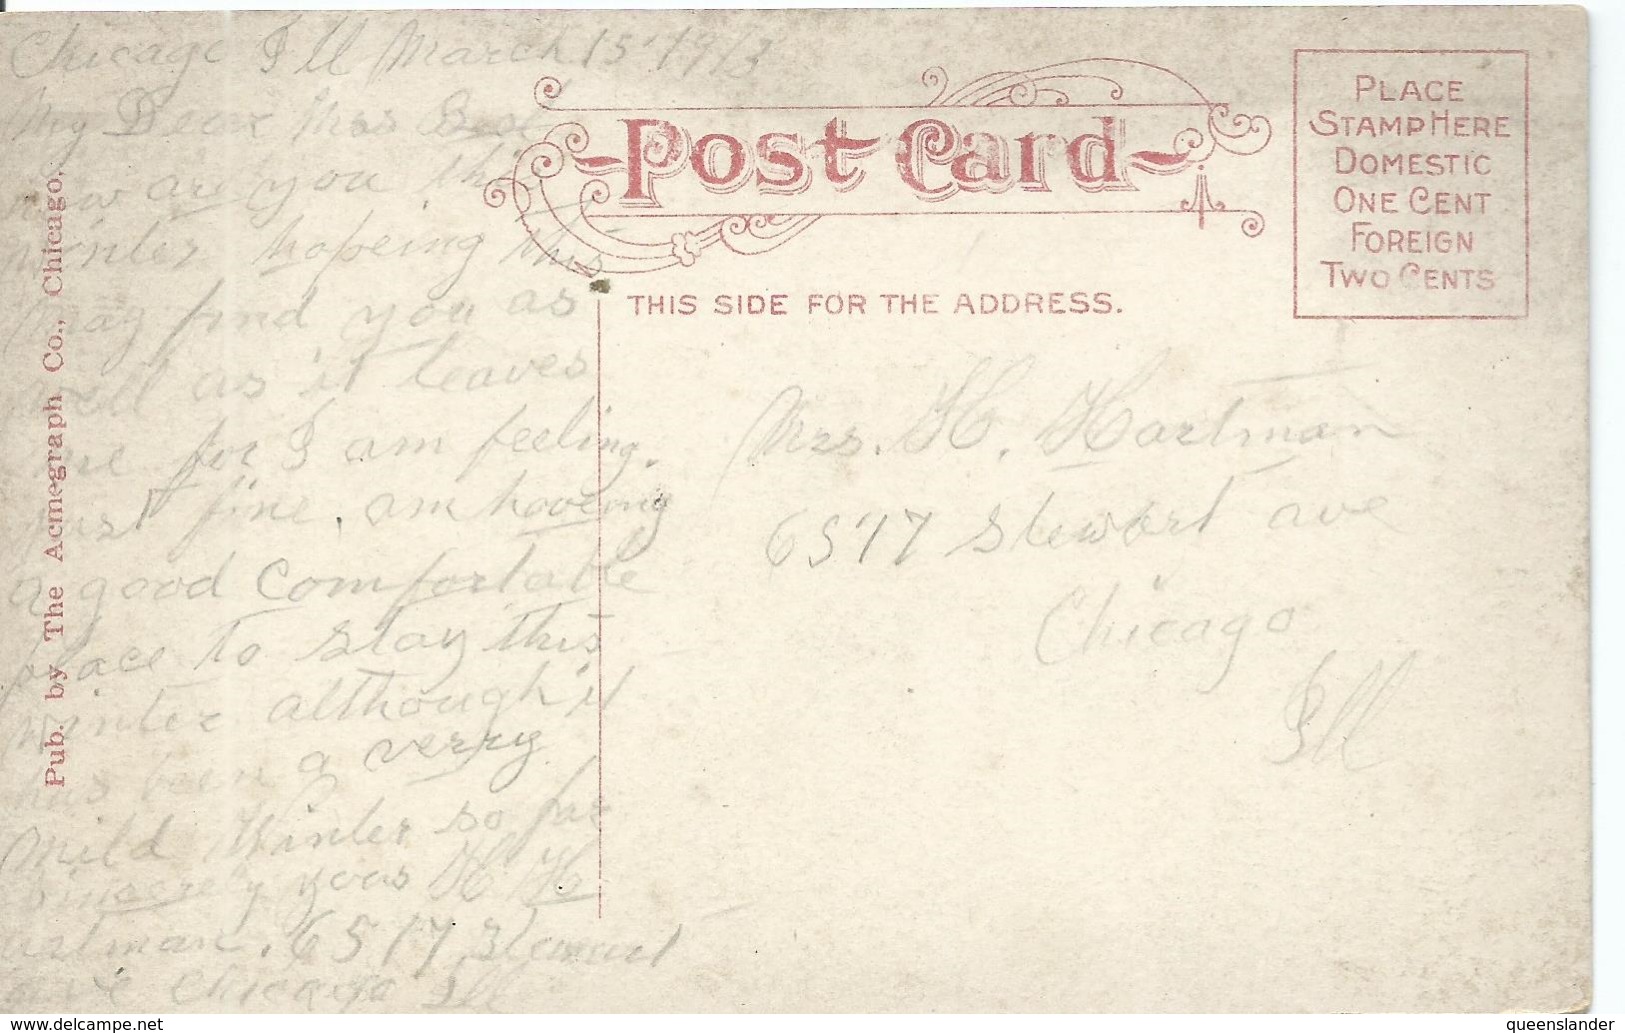 Chicago Ill March 15 1913
My Dear Mrs
how are you this
winter hopeing this
may find you as
well as it leaves
me for I am feeling
just fine, am haveing
a good comfortable
place to stay this
winter although it
has been a verry
mild Winter so far
Sincerely yours H H
artman. 6517 Stewart
ave Chicago Ill
Pub. by The Acmegraph Co., Chicago.
Post Card
THIS SIDE FOR THE ADDRESS.
PLACE
STAMP HERE
DOMESTIC
ONE CENT
FOREIGN
TWO CENTS
Mrs. H. Hartman
6517 Stewart ave
Chicago
Ill
www.delcampe.net
queenslander